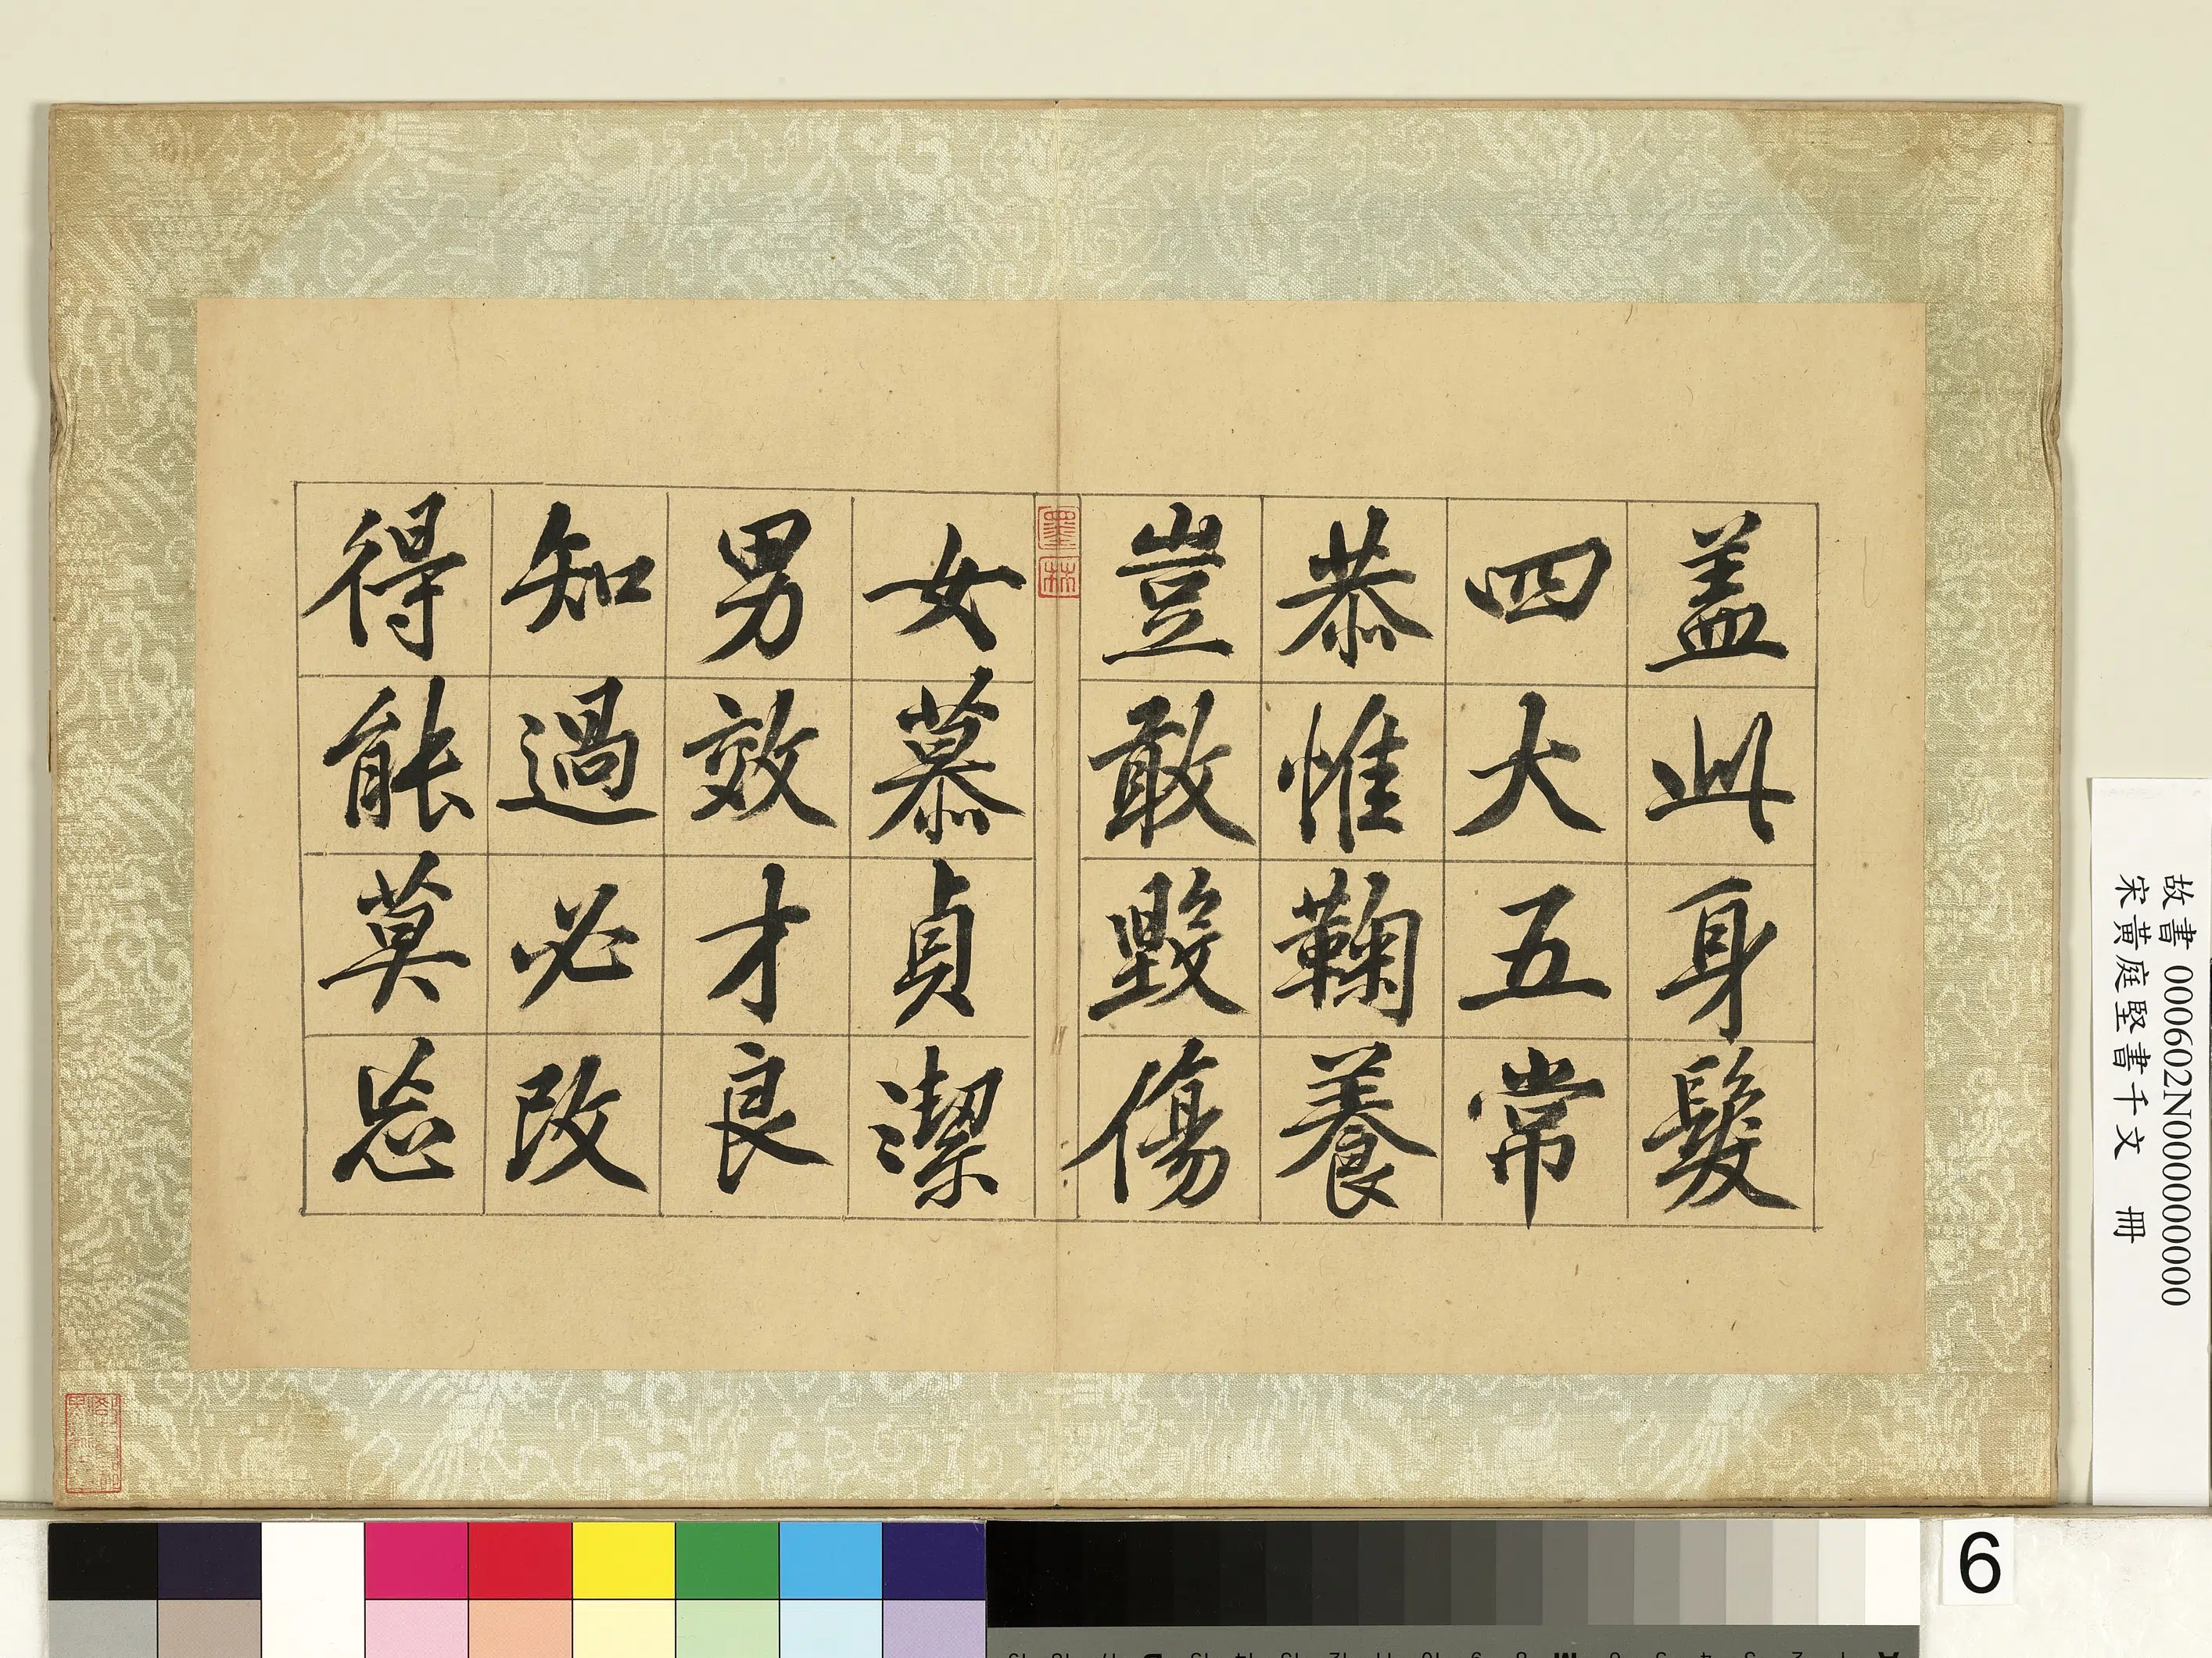 盖此身髮
四大五常
恭惟鞠養
豈敢毀傷
墨林
女慕貞潔
男效才良
知過必改
得能莫忘
故書 000602N000000000
宋黃庭堅書千文 冊
6